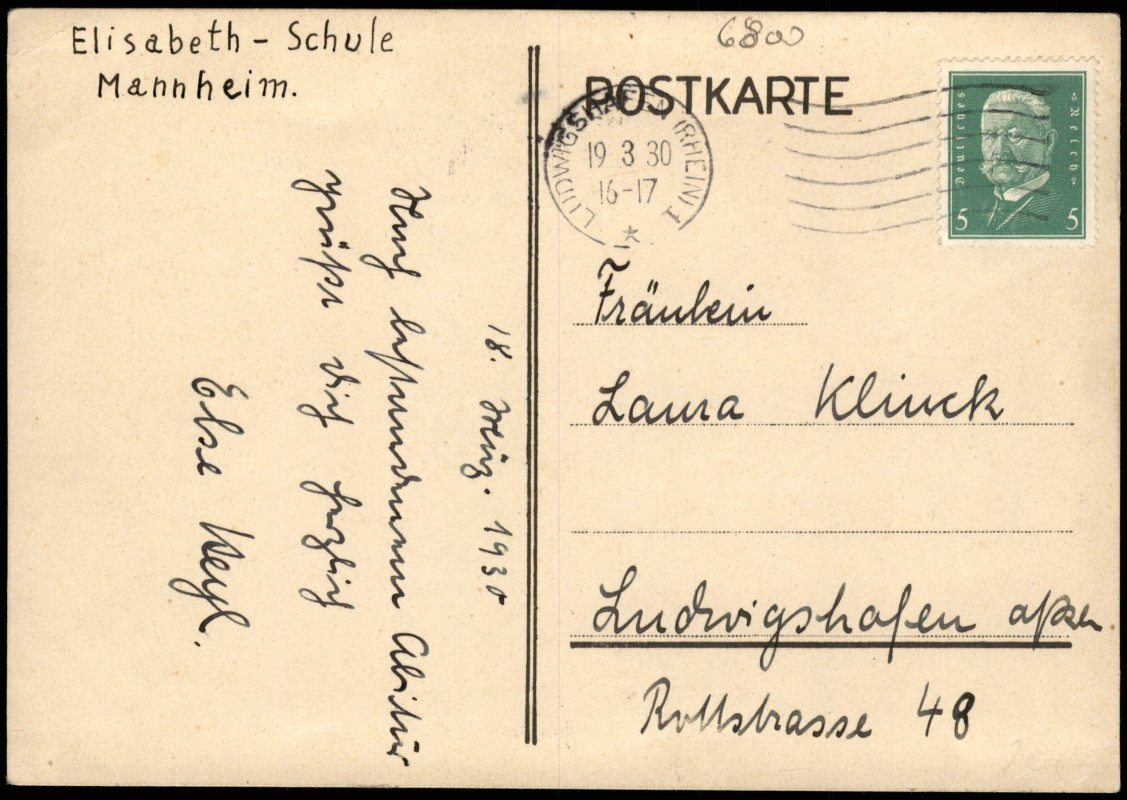 Elisabeth - Schule
Mannheim.
18. März. 1930
Nach bestandenem Abitur
grüßt dich herzlich
Else Weyl.
6800
POSTKARTE
LUDWIGSHAFEN (RHEIN) 1
19 3 30
16-17
Deutsches Reich
5 5
Fräulein
Laura Klinck
Ludwigshafen a/Rhein
Rottstrasse 48